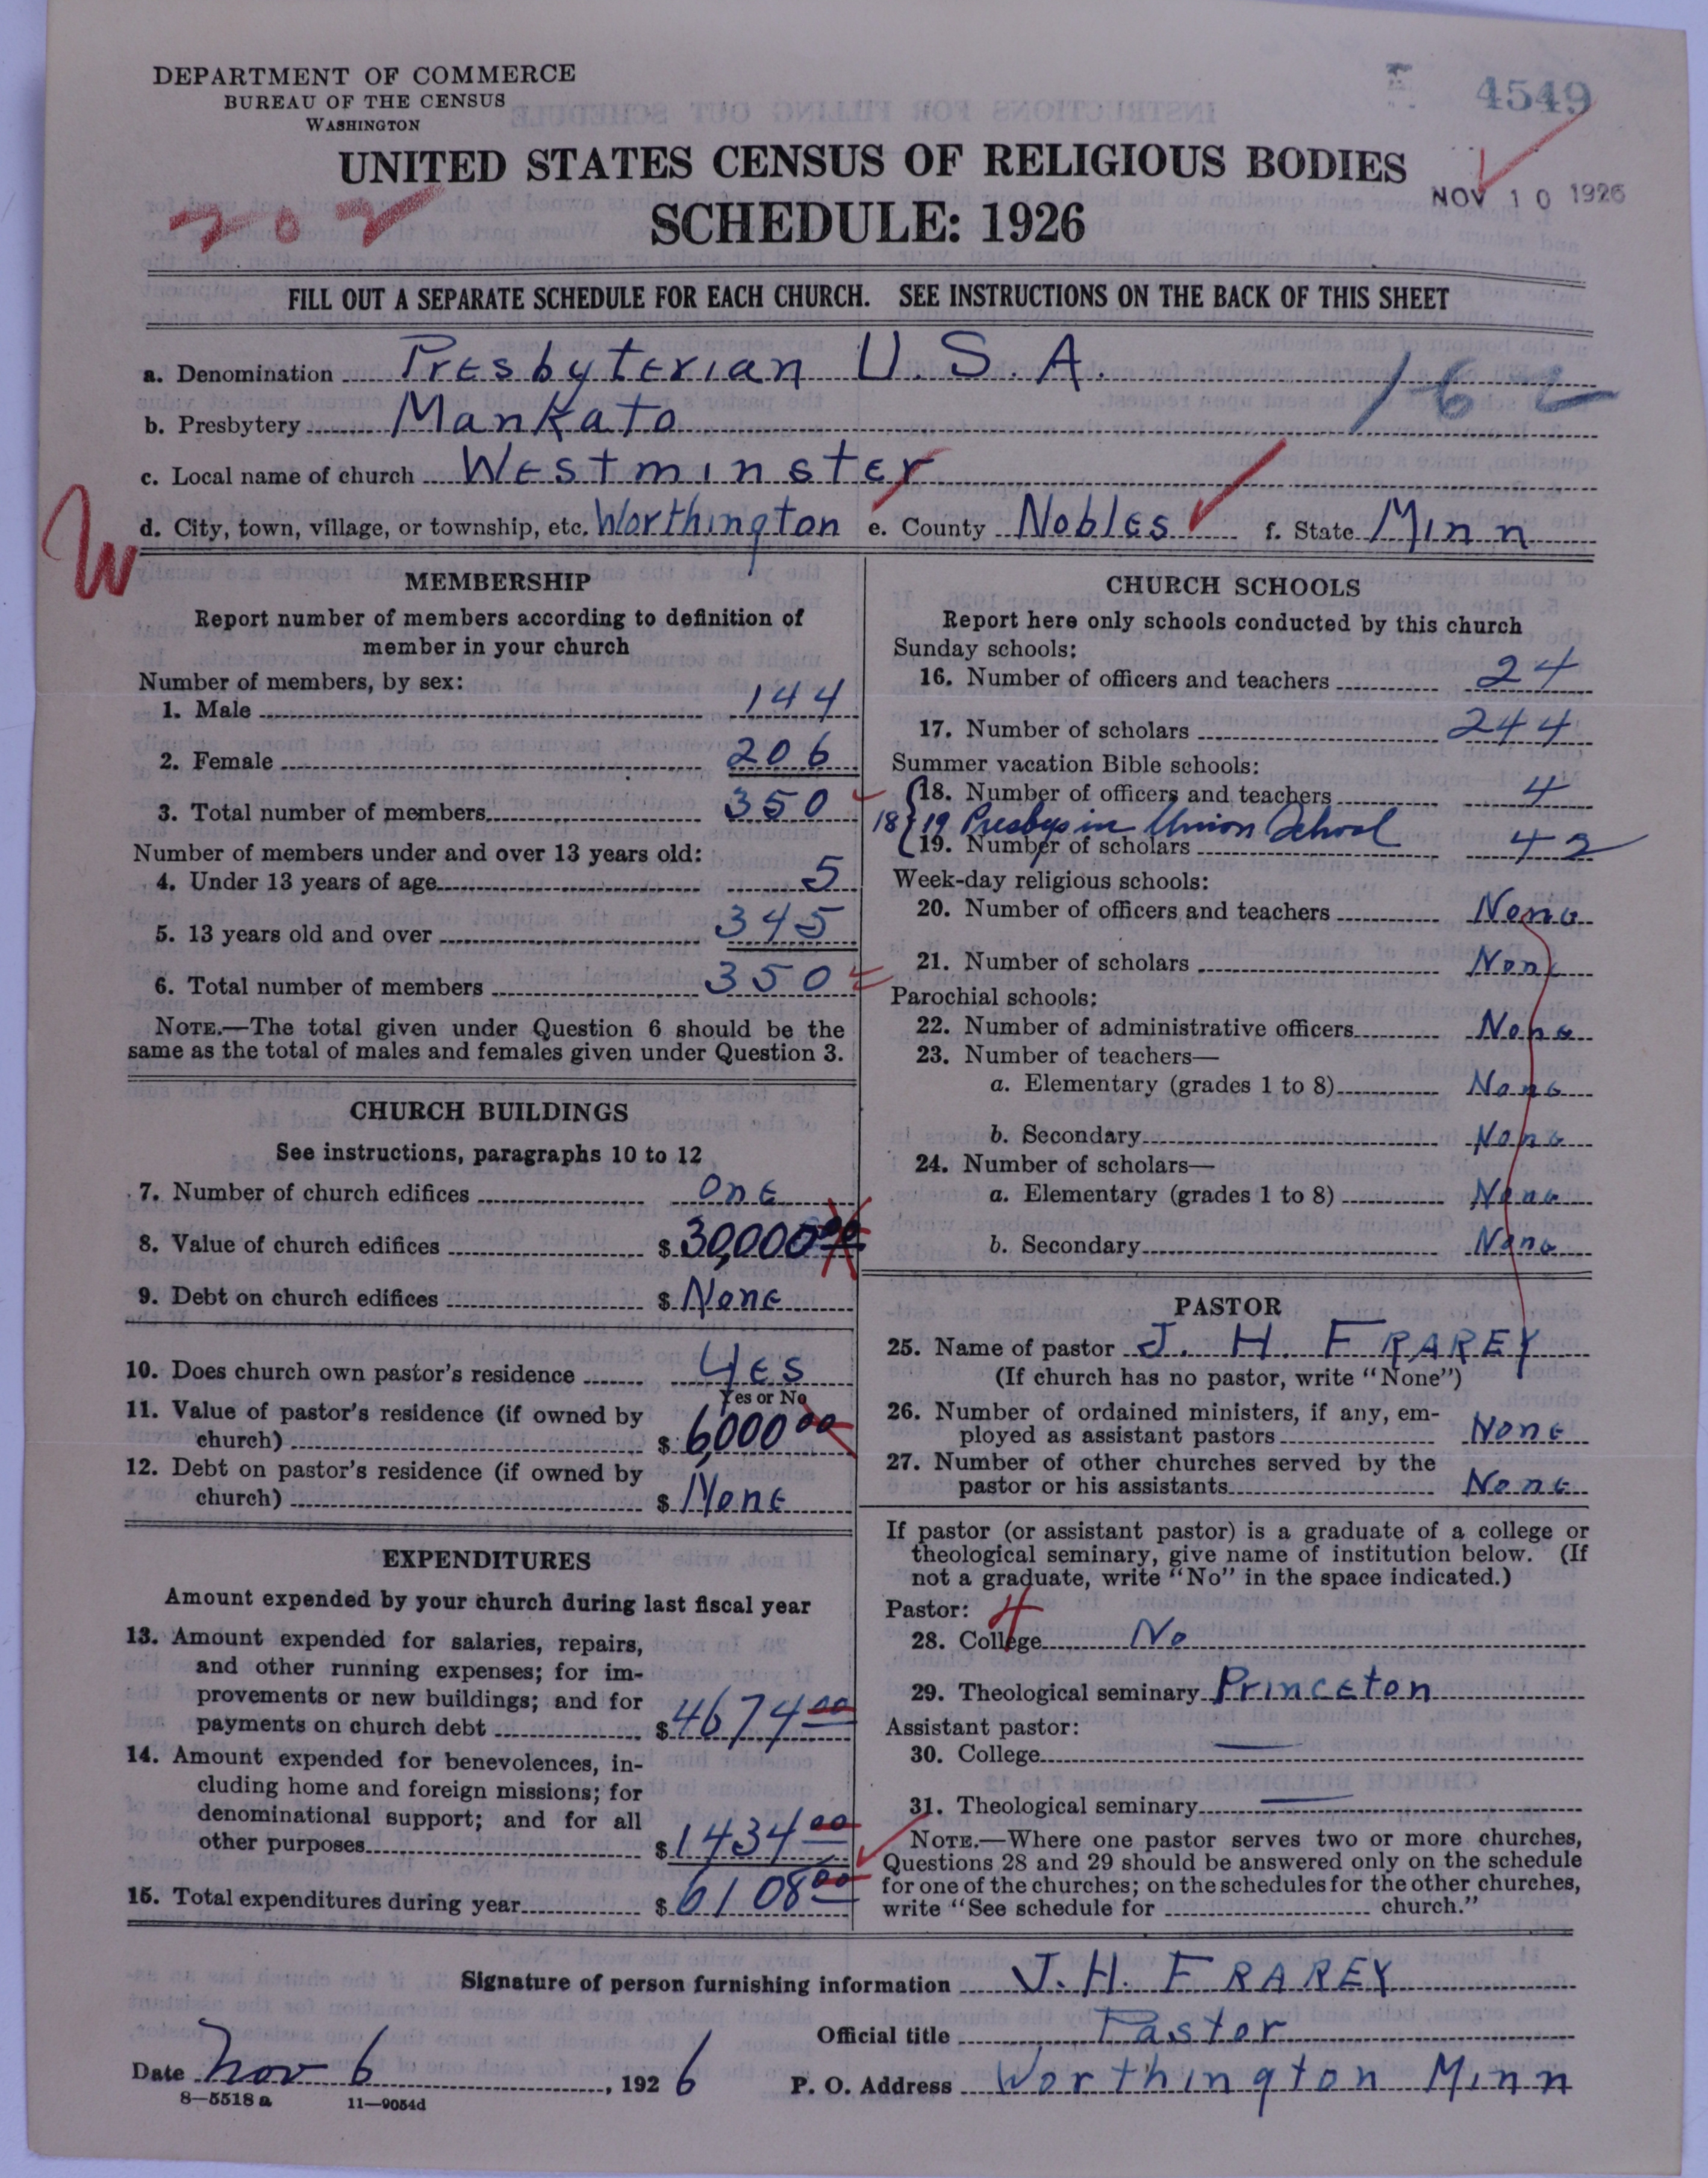 DEPARTMENT OF COMMERCE
BUREAU OF THE CENSUS
WASHINGTON
4549
UNITED STATES CENSUS OF RELIGIOUS BODIES
NOV 10 1926
202
SCHEDULE: 1926
FILL OUT A SEPARATE SCHEDULE FOR EACH CHURCH. SEE INSTRUCTIONS ON THE BACK OF THIS SHEET
a. Denomination Presbyterian U.S.A.
162
b. Presbytery Mankato
c. Local name of church Westminster
W
d. City, town, village, or township, etc. Worthington e. County Nobles f. State Minn
MEMBERSHIP
Report number of members according to definition of
member in your church
Number of members, by sex:
1. Male 144
2. Female 206
3. Total number of members 350
Number of members under and over 13 years old:
4. Under 13 years of age 5
5. 13 years old and over 345
6. Total number of members 350
NOTE.—The total given under Question 6 should be the
same as the total of males and females given under Question 3.
CHURCH BUILDINGS
See instructions, paragraphs 10 to 12
7. Number of church edifices One
8. Value of church edifices $ 30,000 00
9. Debt on church edifices $ None
10. Does church own pastor's residence Yes
Yes or No
11. Value of pastor's residence (if owned by
church) $ 6,000 00
12. Debt on pastor's residence (if owned by
church) $ None
EXPENDITURES
Amount expended by your church during last fiscal year
13. Amount expended for salaries, repairs,
and other running expenses; for im-
provements or new buildings; and for
payments on church debt $ 4674 00
14. Amount expended for benevolences, in-
cluding home and foreign missions; for
denominational support; and for all
other purposes $ 1434 00
15. Total expenditures during year $ 6108 00
CHURCH SCHOOLS
Report here only schools conducted by this church
Sunday schools:
16. Number of officers and teachers 24
17. Number of scholars 244
Summer vacation Bible schools:
18. Number of officers and teachers 4
18 19 Presbys in Union School
19. Number of scholars 42
Week-day religious schools:
20. Number of officers and teachers None
21. Number of scholars None
Parochial schools:
22. Number of administrative officers None
23. Number of teachers—
a. Elementary (grades 1 to 8) None
b. Secondary None
24. Number of scholars—
a. Elementary (grades 1 to 8) None
b. Secondary None
PASTOR
25. Name of pastor J. H. FRAREY
(If church has no pastor, write "None")
26. Number of ordained ministers, if any, em-
ployed as assistant pastors None
27. Number of other churches served by the
pastor or his assistants None
If pastor (or assistant pastor) is a graduate of a college or
theological seminary, give name of institution below. (If
not a graduate, write "No" in the space indicated.)
Pastor: 4
28. College No
29. Theological seminary Princeton
Assistant pastor:
30. College
31. Theological seminary
NOTE.—Where one pastor serves two or more churches,
Questions 28 and 29 should be answered only on the schedule
for one of the churches; on the schedules for the other churches,
write "See schedule for church."
Signature of person furnishing information J. H. FRAREY
Official title Pastor
Date Nov 6, 1926
P. O. Address Worthington Minn
8—5518 a 11—9054d